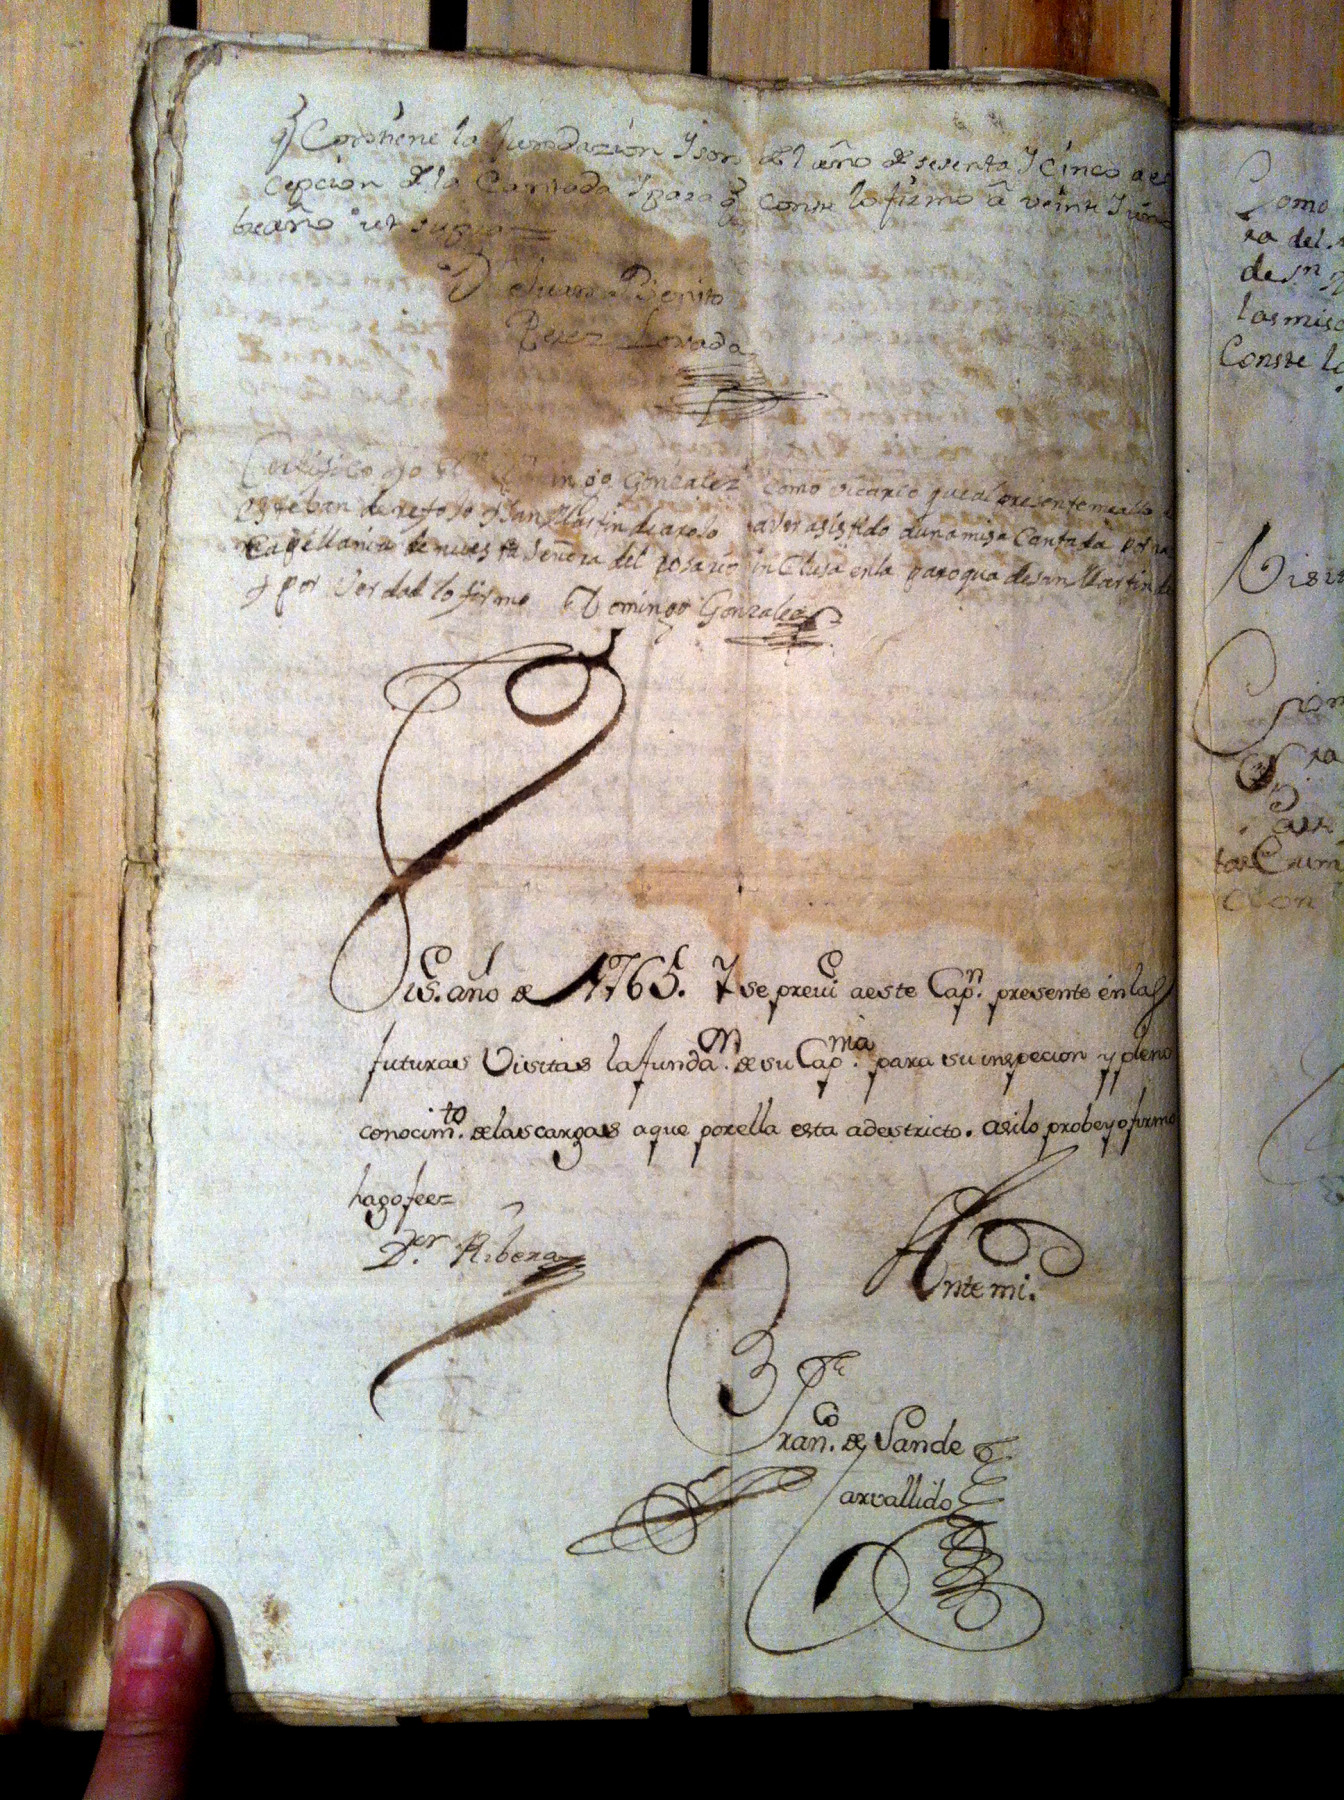 q.e Contiene la fundazion Y son del año de sesenta Y cinco a ec
cepcion de la Cantada Y para q.e conste lo firmo â veinte Y
bre año ut supra=
D.n Juan Benito
Perez Losada
Certifico yo D.n Domingo Gonzalez como vicario que al presente me allo
esteban de refojo y San Martin de arolo aver asistido a una misa Cantada por
Capellania de nuestra Señora del Rosario inclusa en la paroqua de san Martin de
y por Verdad lo firmo Domingo Gonzalez
Vis.ta año de 1765. Y se previ.e a este Cap.n presente en las
futuras Visitas la funda.on de su Cap.nia para su inspecion y pleno
conocim.to de las cargas a que por ella esta adestricto. asi lo probeyo firmo
hago fee=
D.or Ribera
Ante mi.
Fran.co de Sande
Carvallido
Como
ra del
de s.n
las mis
Conste lo
Visit